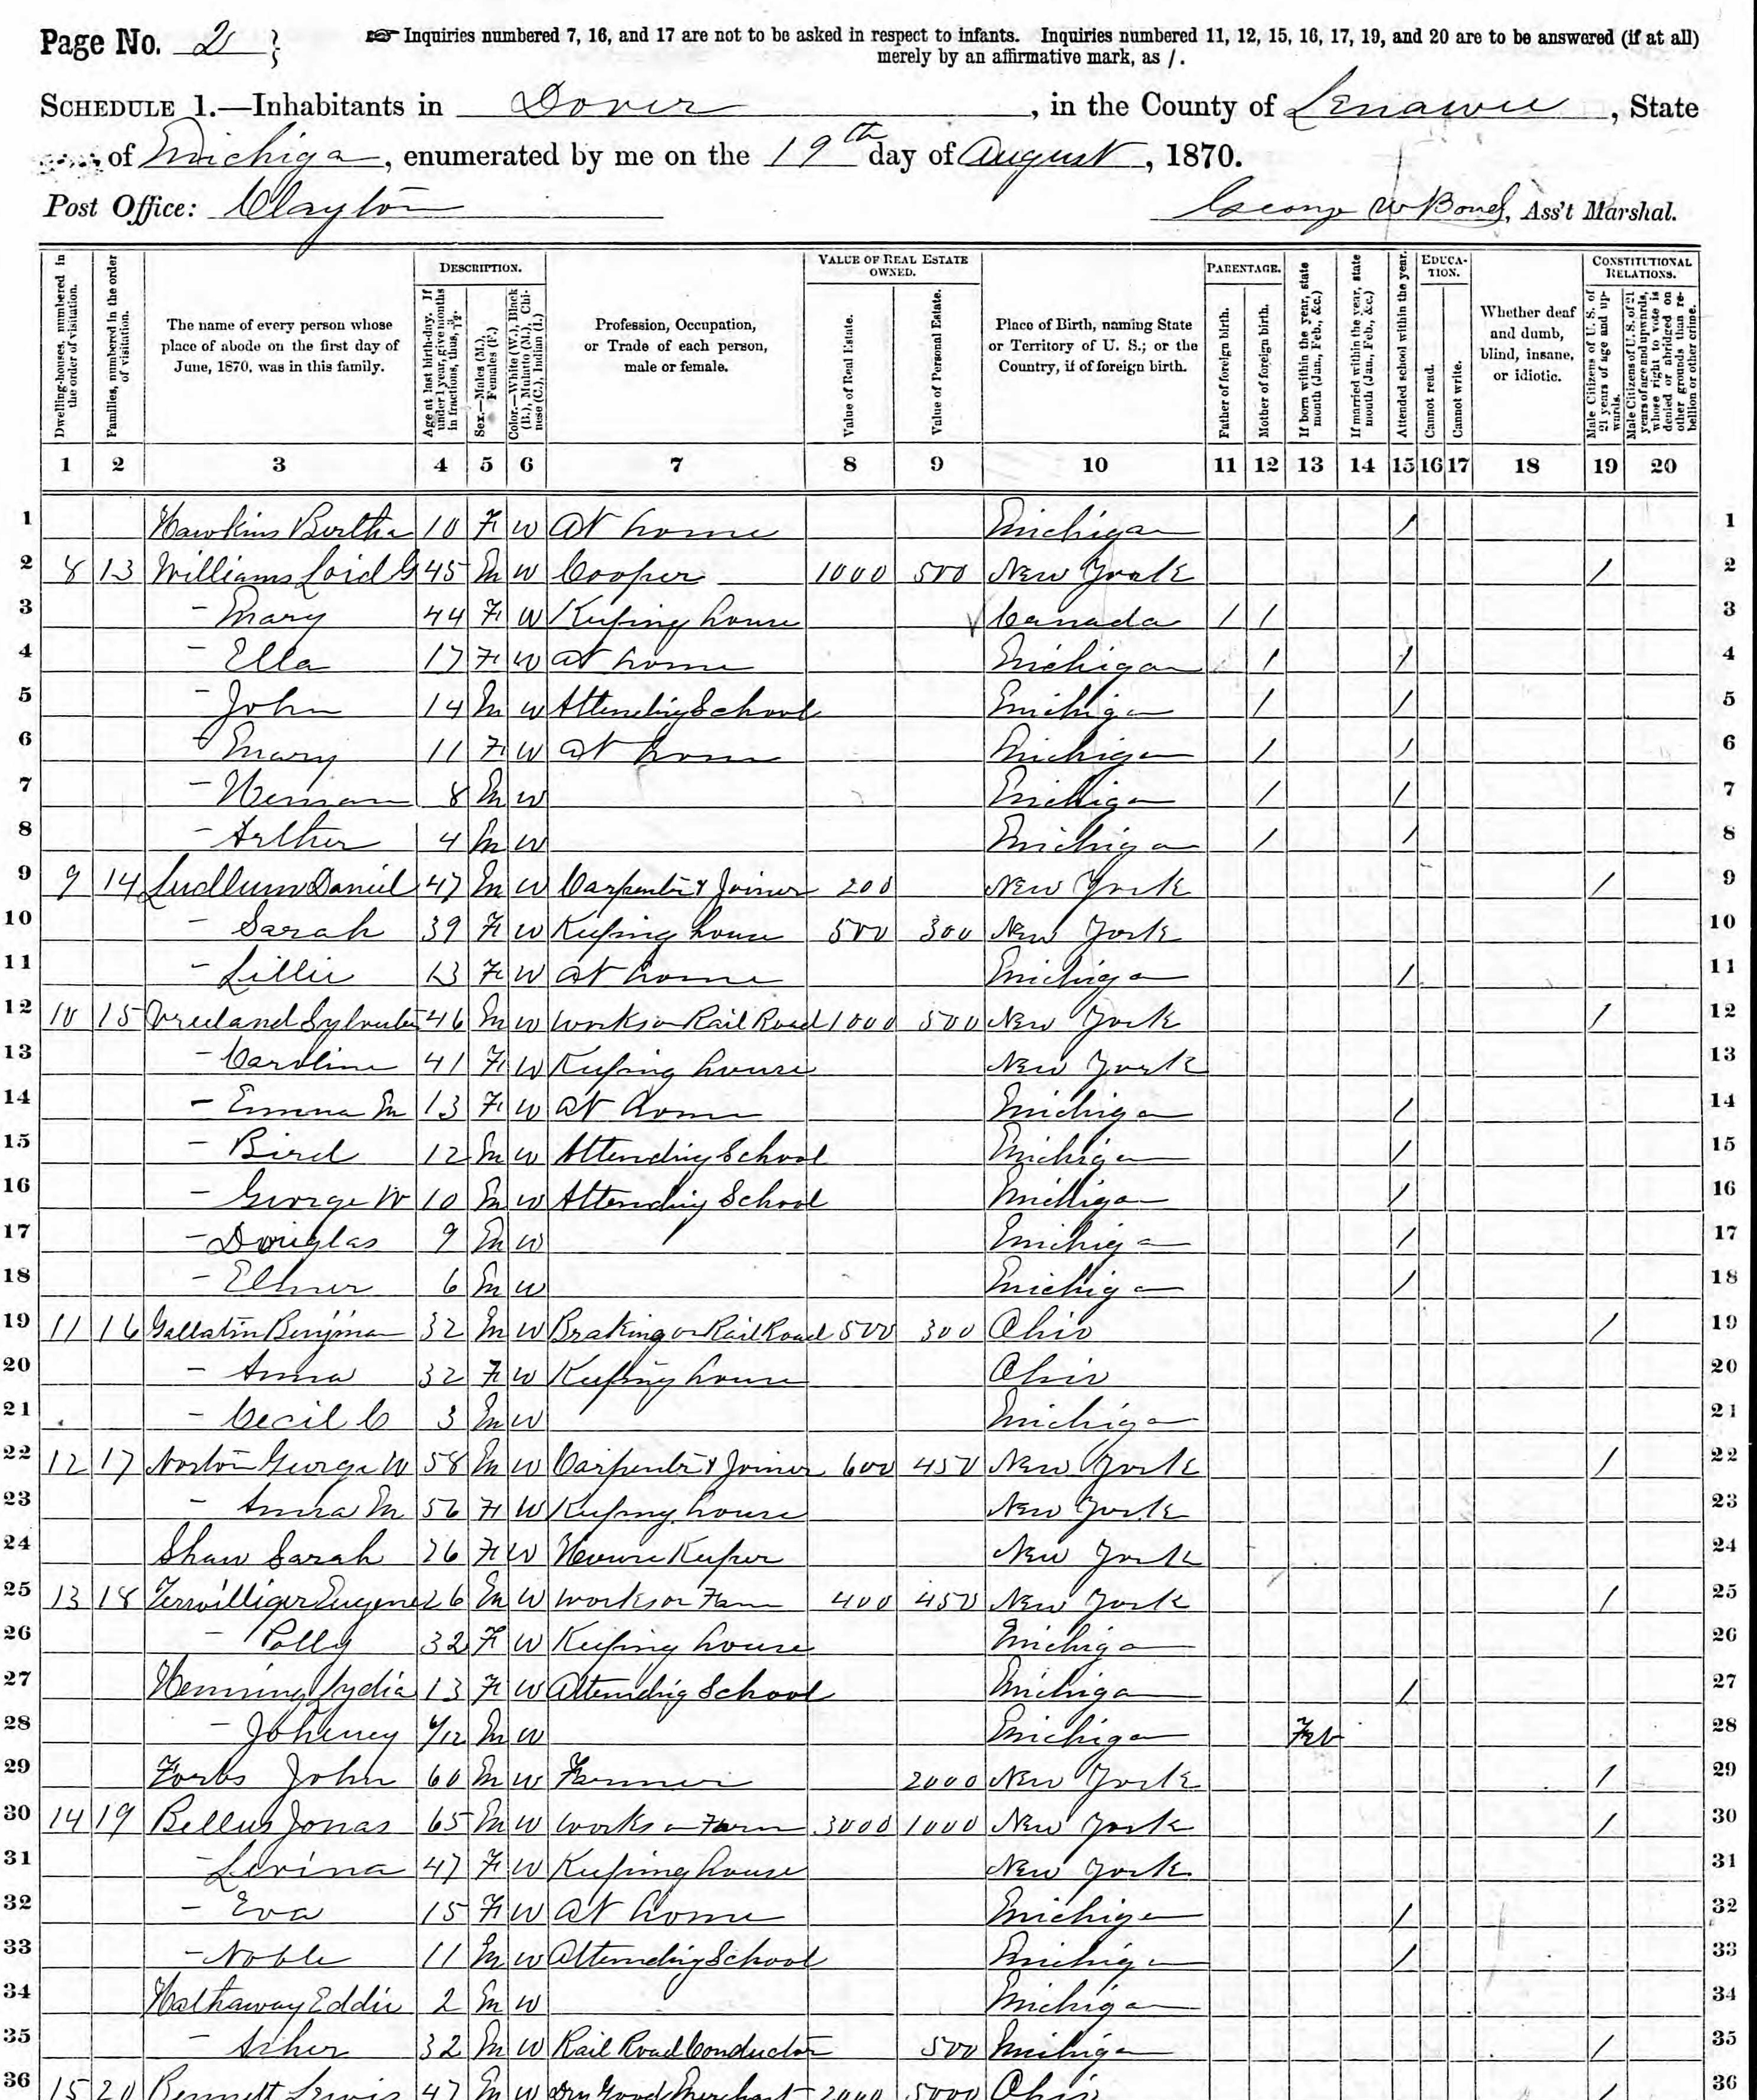 Page No. 2 } ☞ Inquiries numbered 7, 16, and 17 are not to be asked in respect to infants. Inquiries numbered 11, 12, 15, 16, 17, 19, and 20 are to be answered (if at all)
merely by an affirmative mark, as /.
SCHEDULE 1.—Inhabitants in Dover, in the County of Lenawee, State
of Michiga, enumerated by me on the 19th day of August, 1870.
Post Office: Clayton George W Bond, Ass't Marshal.
Dwelling-houses, numbered in the order of visitation.
Families, numbered in the order of visitation.
The name of every person whose place of abode on the first day of June, 1870, was in this family.
DESCRIPTION.
Age at last birth-day. If under 1 year, give months in fractions, thus, 3/12.
Sex.—Males (M.), Females (F.)
Color.—White (W.), Black (B.), Mulatto (M.), Chinese (C.), Indian (I.)
Profession, Occupation, or Trade of each person, male or female.
VALUE OF REAL ESTATE OWNED.
Value of Real Estate.
Value of Personal Estate.
Place of Birth, naming State or Territory of U. S.; or the Country, if of foreign birth.
PARENTAGE.
Father of foreign birth.
Mother of foreign birth.
If born within the year, state month (Jan., Feb., &c.)
If married within the year, state month (Jan., Feb., &c.)
Attended school within the year.
EDUCATION.
Cannot read.
Cannot write.
Whether deaf and dumb, blind, insane, or idiotic.
CONSTITUTIONAL RELATIONS.
Male Citizens of U. S. of 21 years of age and upwards.
Male Citizens of U. S. of 21 years of age and upwards, whose right to vote is denied or abridged on other grounds than rebellion or other crime.
1 2 3 4 5 6 7 8 9 10 11 12 13 14 15 16 17 18 19 20
1 Hawkins Bertha 10 F W At home Michigan / 1
2 8 13 Williams Loid G 45 M W Cooper 1000 500 New York / 2
3 — Mary 44 F W Keeping house Canada / / 3
4 — Ella 17 F W At home Michigan / / 4
5 — John 14 M W Attending School Michigan / / 5
6 — Mary 11 F W At home Michigan / / 6
7 — Herman 8 M W Michigan / / 7
8 — Arther 4 M W Michigan / / 8
9 9 14 Ludlum Daniel 47 M W Carpenter & Joiner 200 New York / 9
10 — Sarah 39 F W Keeping house 500 300 New York 10
11 — Lillie 13 F W At home Michigan / 11
12 10 15 Vreeland Sylvester 46 M W Works on Rail Road 1000 500 New York / 12
13 — Caroline 41 F W Keeping house New York 13
14 — Emma M 13 F W At home Michigan / 14
15 — Bird 12 M W Attending School Michigan / 15
16 — George W 10 M W Attending School Michigan / 16
17 — Douglas 9 M W Michigan / 17
18 — Elmer 6 M W Michigan / 18
19 11 16 Gallatin Benjman 32 M W Braking on Rail Road 500 300 Ohio / 19
20 — Anna 32 F W Keeping house Ohio 20
21 — Cecil C 3 M W Michigan 21
22 12 17 Norton George W 58 M W Carpenter & Joiner 600 450 New York / 22
23 — Anna M 56 F W Keeping house New York 23
24 Shaw Sarah 26 F W House Keeper New York 24
25 13 18 Terwilliger Eugene 26 M W Works on Farm 400 450 New York / 25
26 — Polly 32 F W Keeping house Michigan 26
27 Henning Lydia 13 F W Attending School Michigan / 27
28 — Johney 6/12 M W Michigan Feb 28
29 Forbs John 60 M W Farmer 2000 New York / 29
30 14 19 Bellus Jonas 65 M W Works on Farm 3000 1000 New York / 30
31 — Levina 47 F W Keeping house New York 31
32 — Eva 15 F W At home Michigan / 32
33 — Noble 11 M W Attending School Michigan / 33
34 Hathaway Eddie 2 M W Michigan 34
35 — Asher 32 M W Rail Road Conductor 500 Michigan / 35
36 15 20 Bennett Lewis 47 M W Dry Good Merchant 2000 5000 Ohio / 36